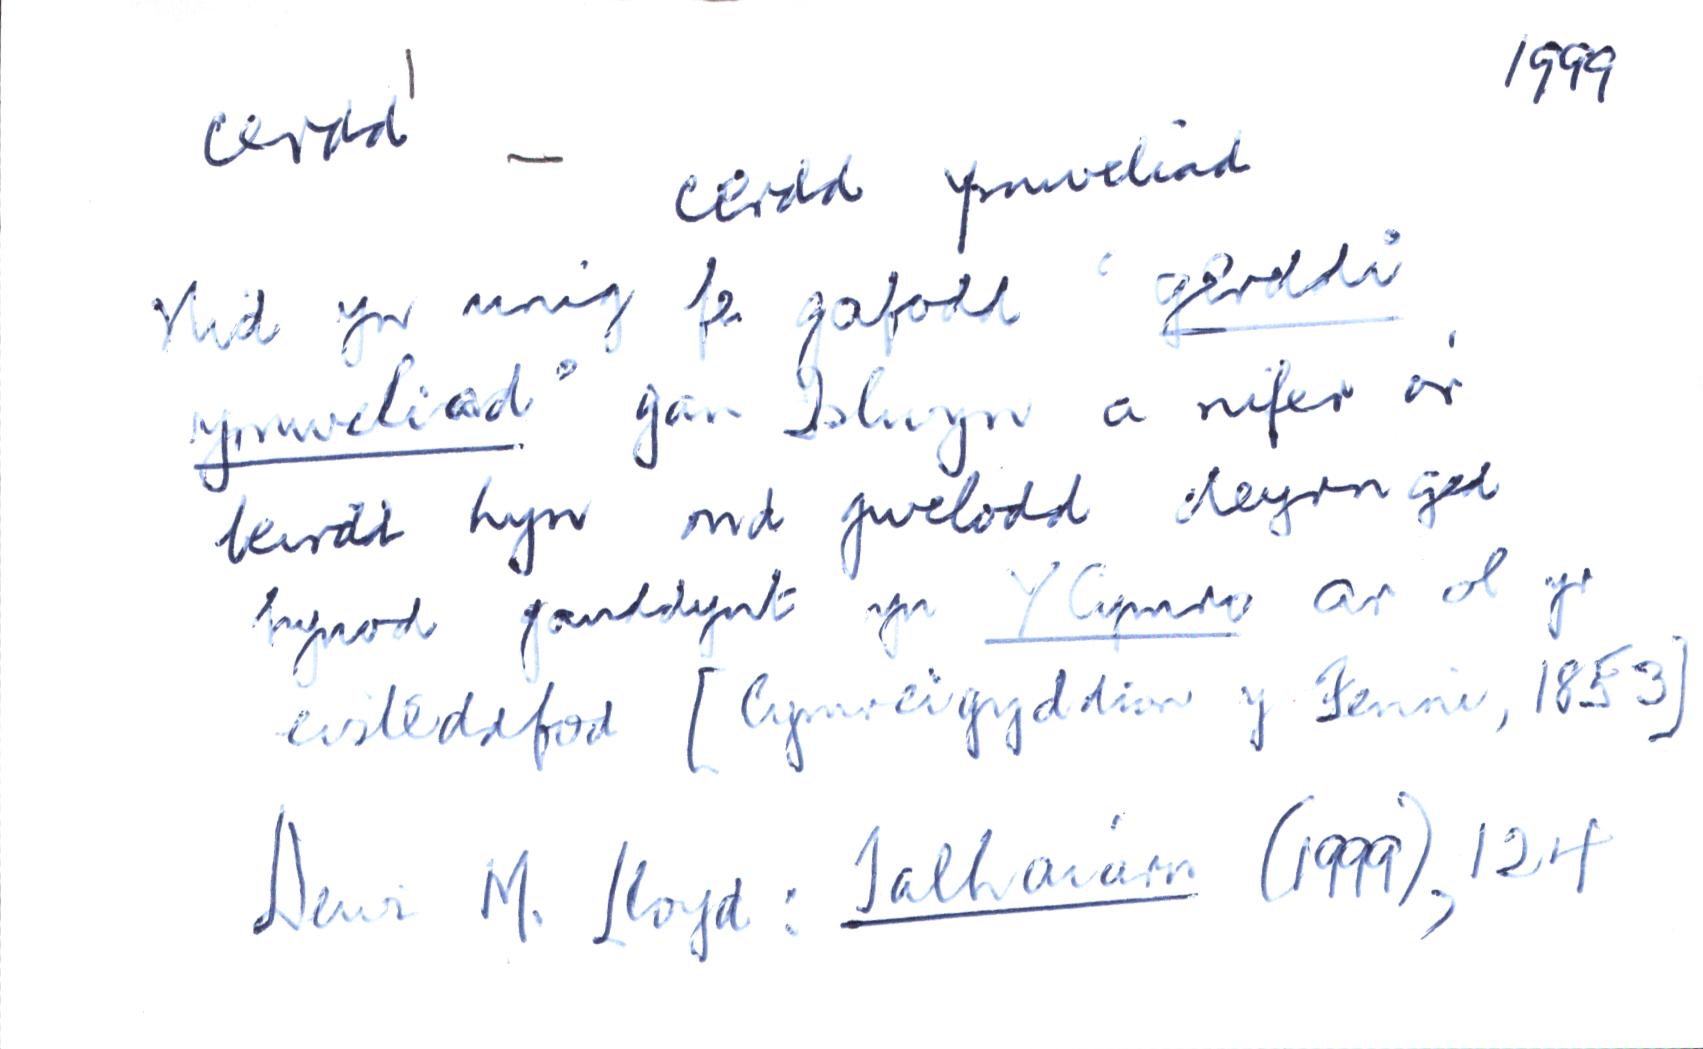 1999
cerdd¹ –
cerdd ymweliad
Nid yn unig fe gafodd 'gerddi
ymweliad' gan Islwyn a nifer o'r
beirdd hyn ond gwelodd deyrnged
hynod ganddynt yn Y Cymro ar ol yr
eisteddfod [Cymreigyddion y Fenni, 1853]
Dewi M. Lloyd: Talhaiarn (1999), 124